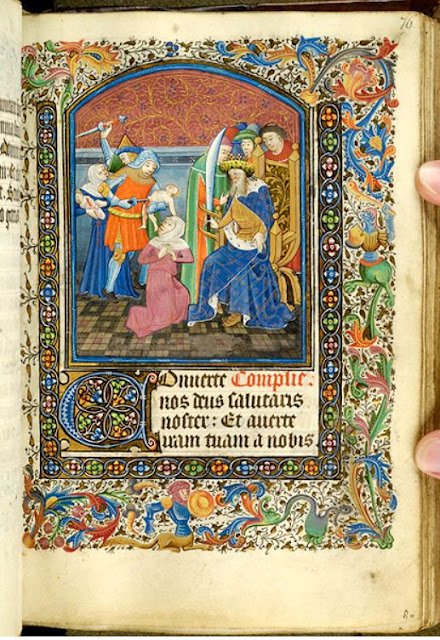 76
COnuerte Complie.
nos deus salutaris
noster: Et auerte
iram tuam a nobis